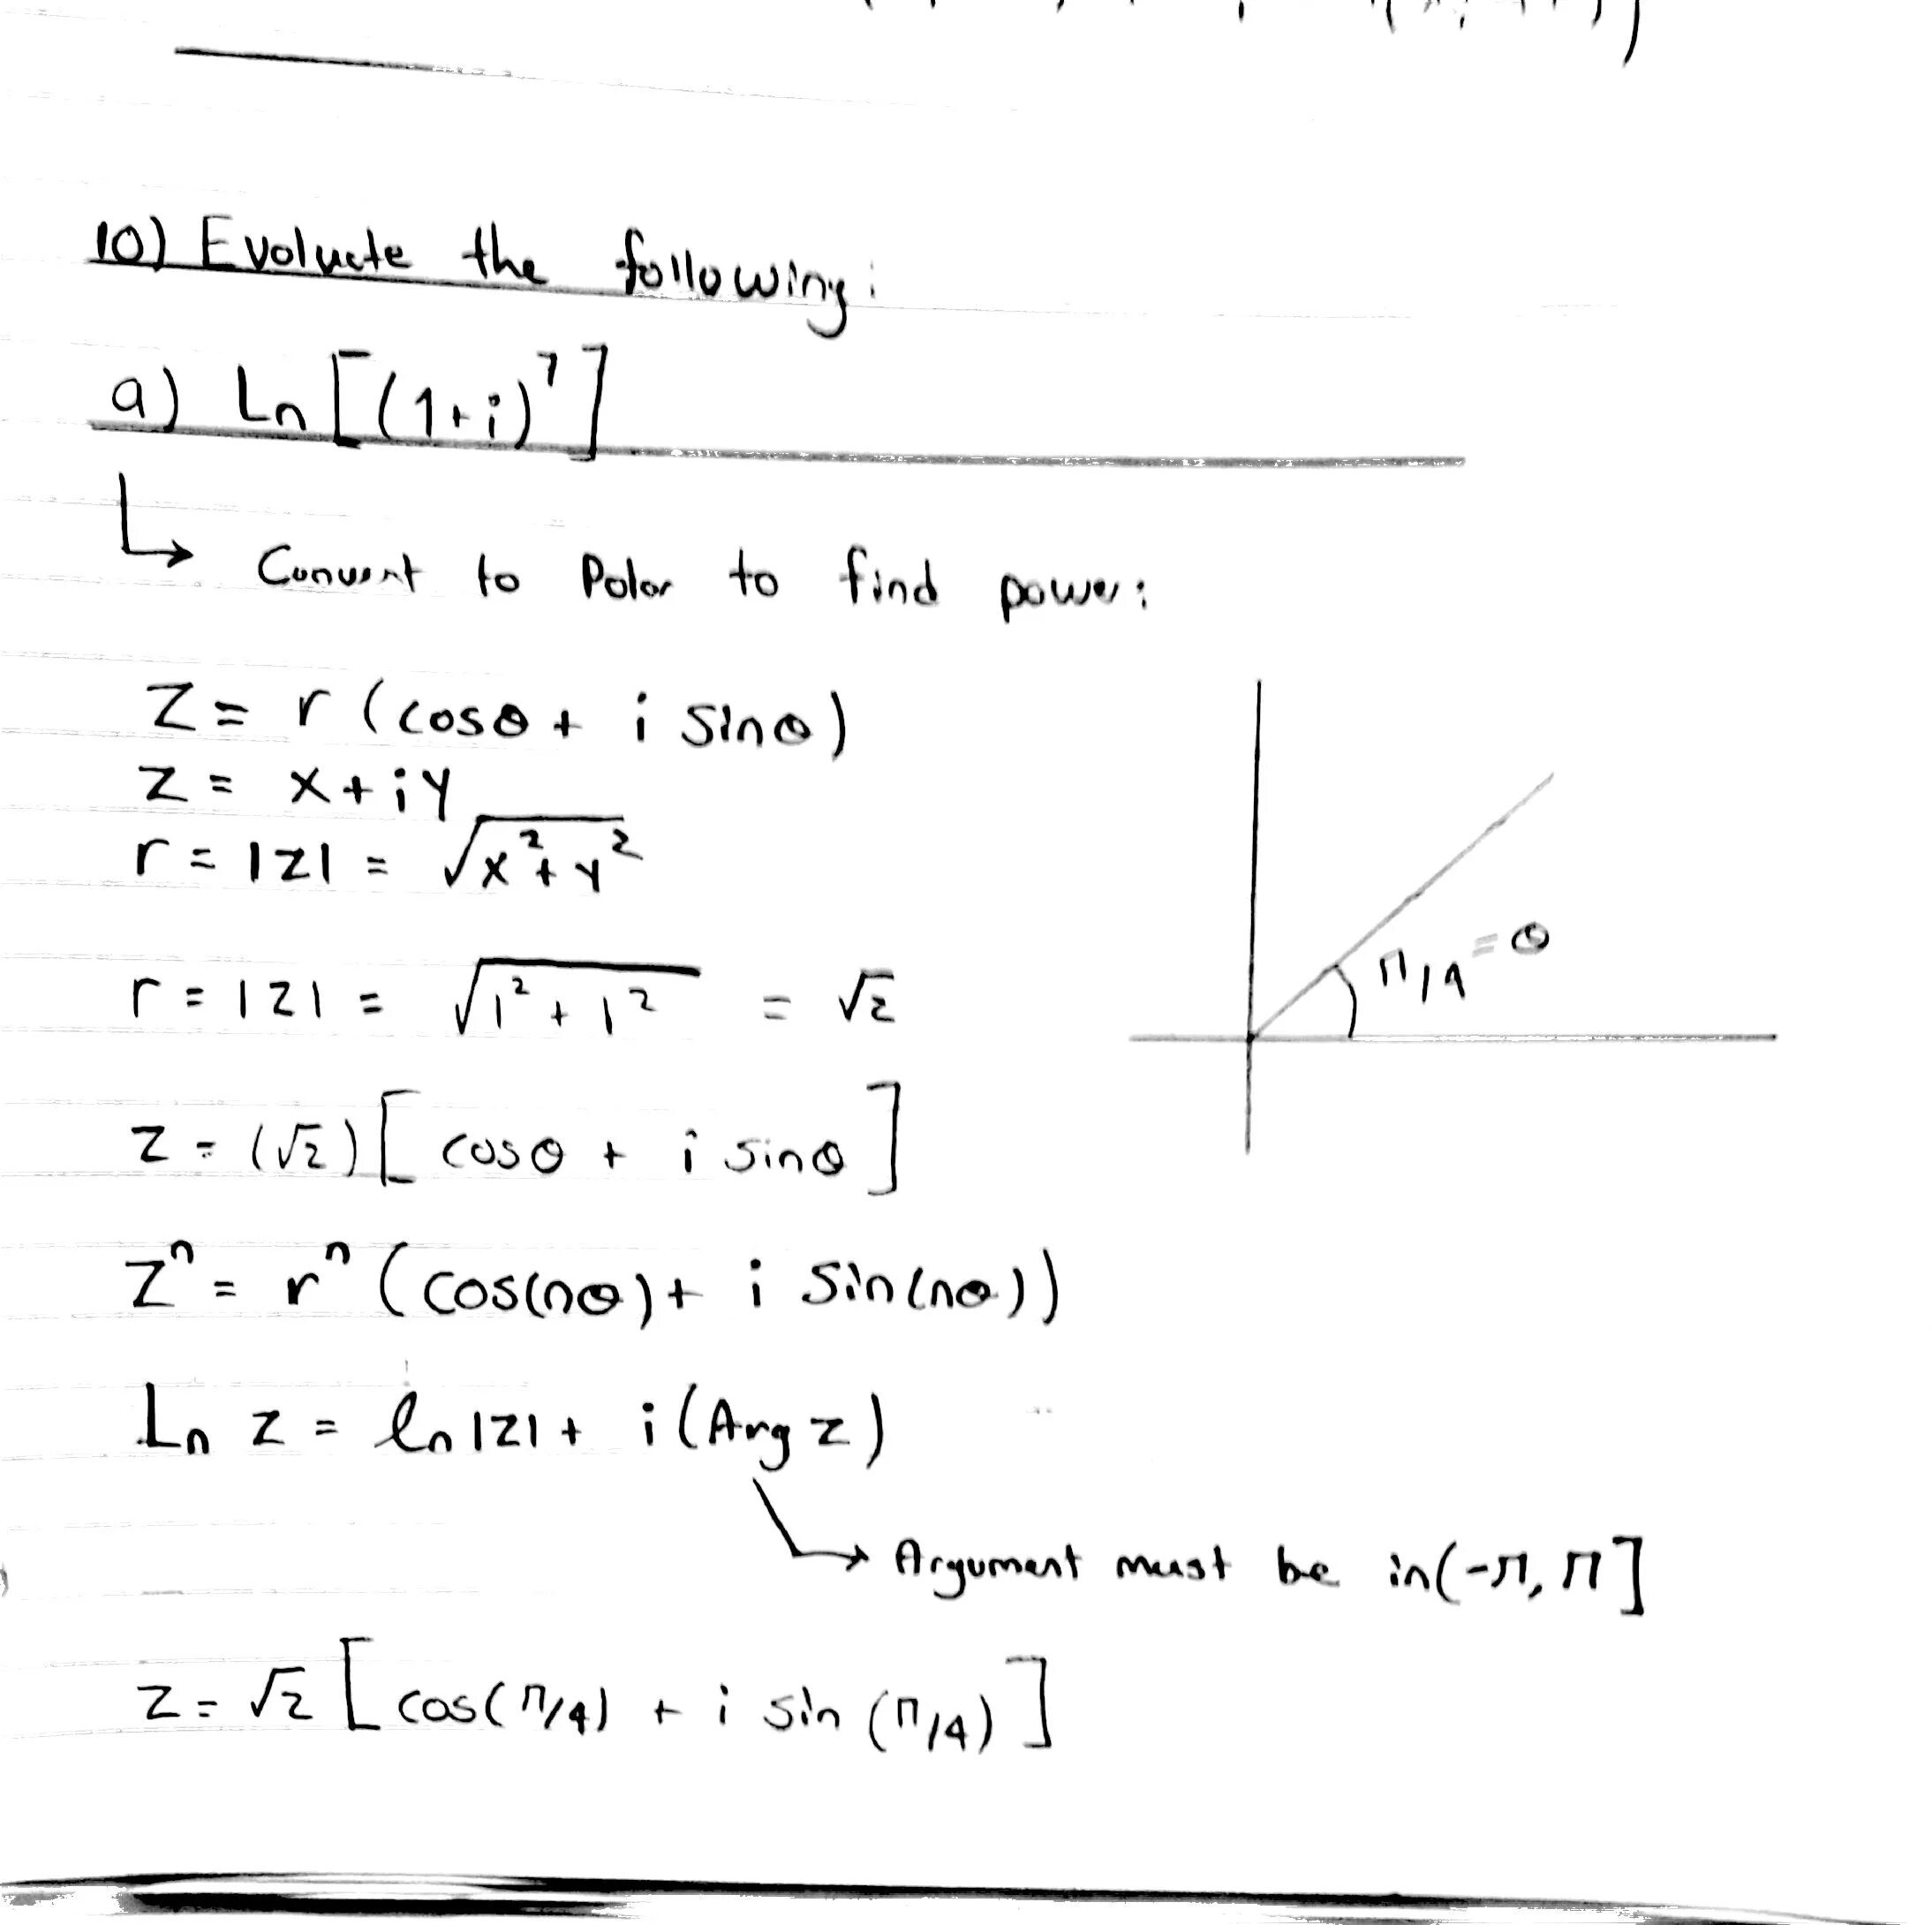 10) Evaluate the following:
a) Ln [(1+i)⁷]
Convert to Polar to find power:
z = r (cosθ + i sinθ)
z = x + iy
r = |z| = √(x² + y²)
π/4 = θ
r = |z| = √(1² + 1²) = √2
z = (√2) [cosθ + i sinθ]
zⁿ = rⁿ (cos(nθ) + i sin(nθ))
Ln z = ln|z| + i(Arg z)
Argument must be in (-π, π]
z = √2 [cos(π/4) + i sin(π/4)]